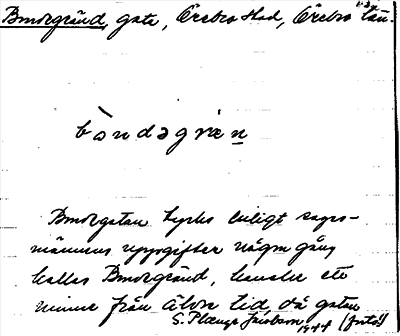 Bmorgränd, gata, Örebro stad, Örebro län.
bòndəgræn
Bmorgatan tycks enligt sages-
männens uppgifter någon gång
kallas Bmorgränd, kanske ett
minne från äldre tid då gatan
S. Plænge Jacobson
1944 (forts)